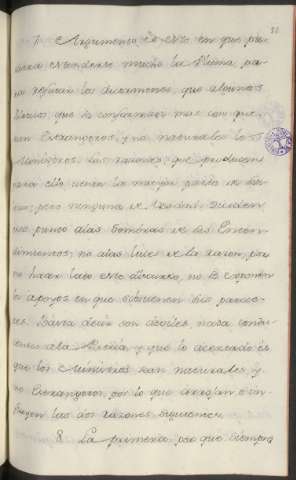 7 Argumento es este en que pu
diera estenderse mucho la Pluma, pa
ra refutar los dictamenes, que algunos
que se conformen mas con que
sean Estrangeros, y no naturales los
Ministros. Las razones, que producen
para ello, tienen la mayor parte de
pero ninguna de
sombras de los Enten
dimientos, no a las luces de la razon, por
no hacer laso este discurso, no se exponen
los apoyos en que establecen sus parece
res. Basta decir son debiles, nada condu
centes a la Materia y que lo acertado es
que los Ministros sean naturales, y
no Estrangeros, por lo que arrojan e in
fluyen las dos razones siguientes.
8 La primera por que siempre